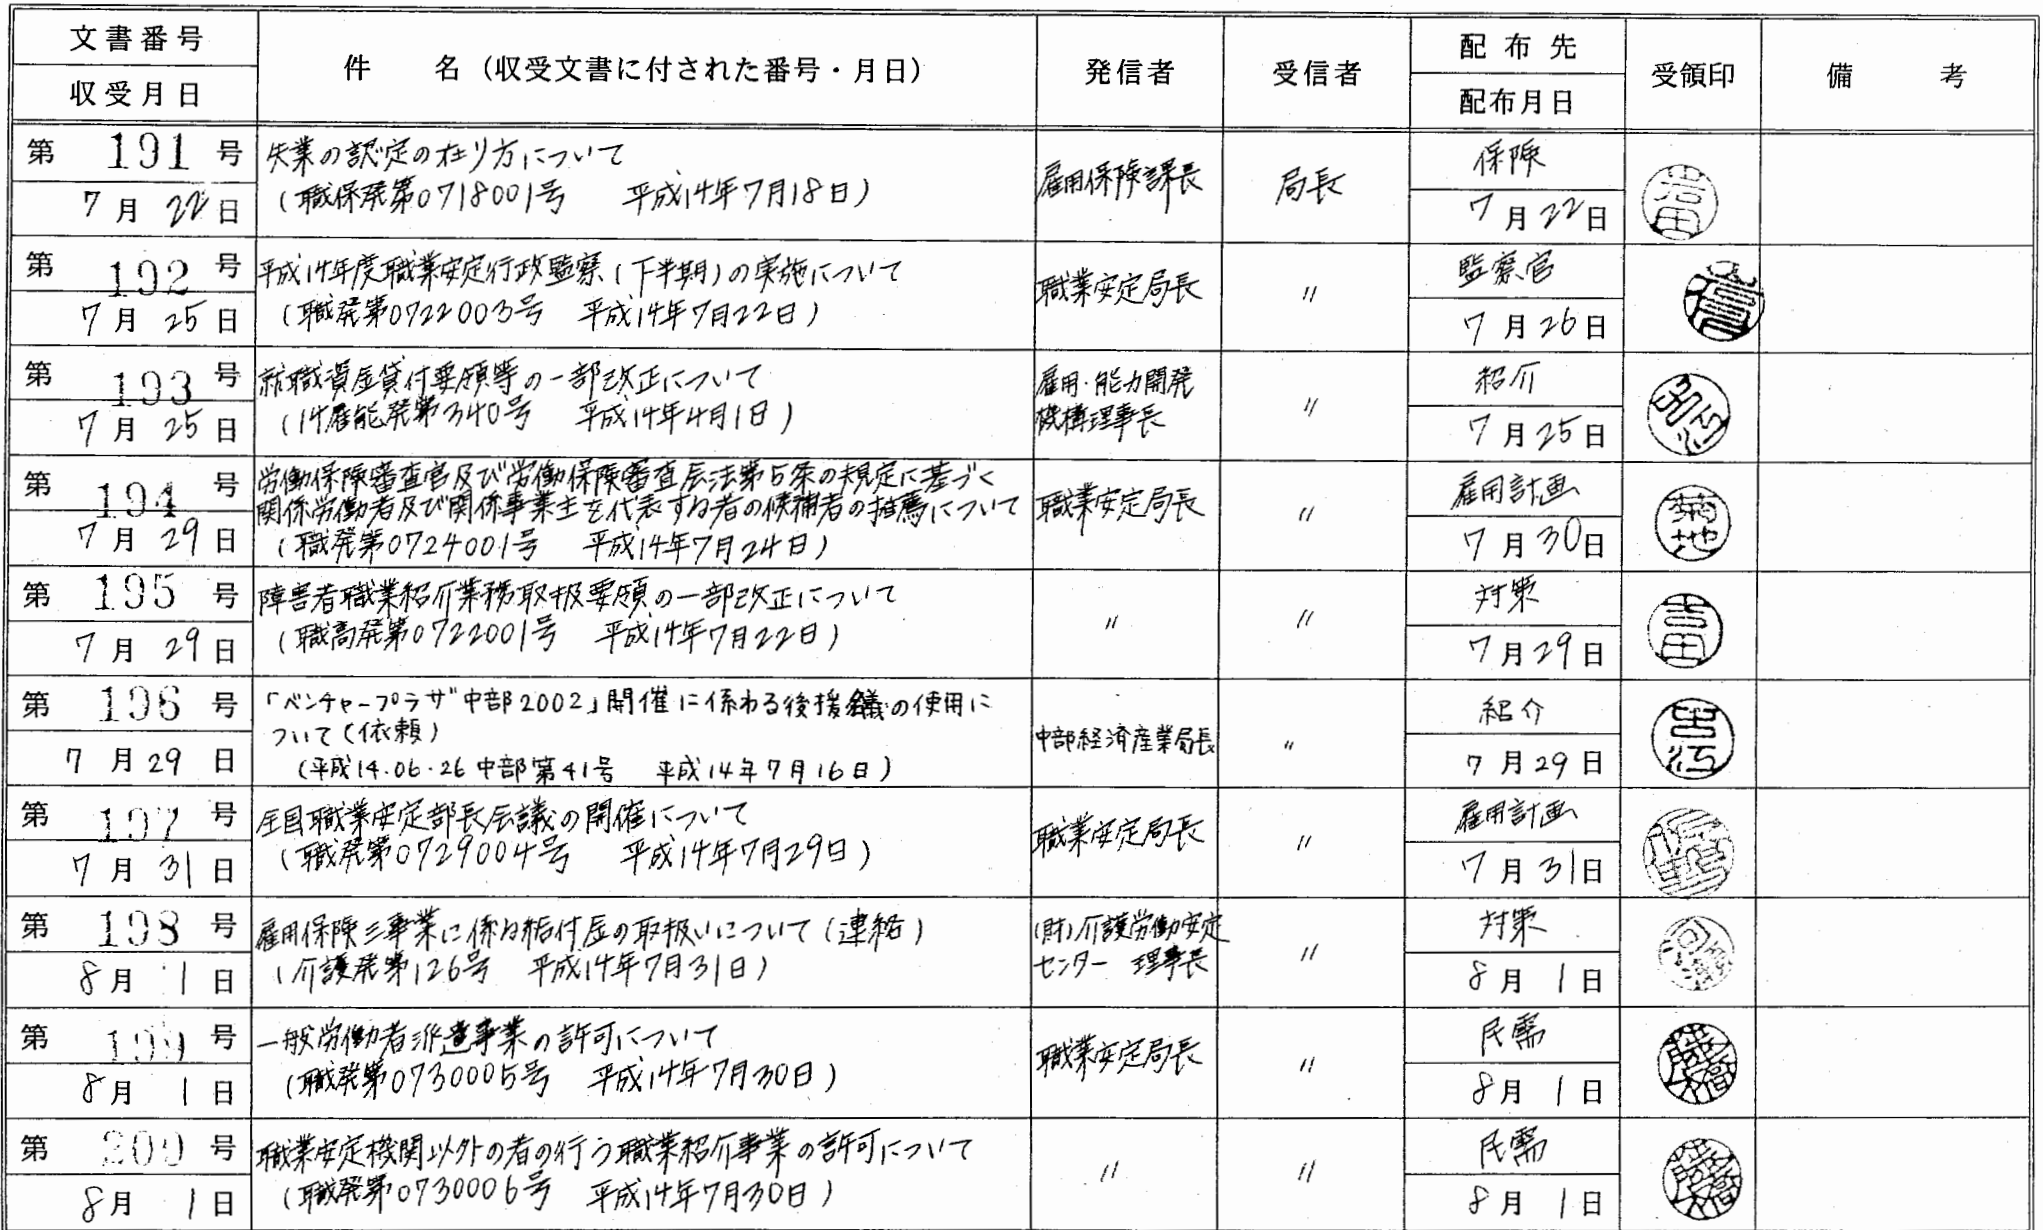 文書番号
収受月日
件　名（収受文書に付された番号・月日）
発信者
受信者
配布先
配布月日
受領印
備　考
第 191 号
7月 22日
失業の認定の在り方について
（職保発第0718001号　平成14年7月18日）
雇用保険課長
局長
保険
7月22日
岩田
第 192 号
7月 25日
平成14年度職業安定行政監察（下半期）の実施について
（職発第0722003号　平成14年7月22日）
職業安定局長
〃
監察官
7月26日
第 193 号
7月 25日
就職資金貸付要領等の一部改正について
（14雇能発第340号　平成14年4月1日）
雇用・能力開発
機構理事長
〃
紹介
7月25日
第 194 号
7月 29日
労働保険審査官及び労働保険審査会法第5条の規定に基づく
関係労働者及び関係事業主を代表する者の候補者の推薦について
（職発第0724001号　平成14年7月24日）
職業安定局長
〃
雇用計画
7月30日
菊地
第 195 号
7月 29日
障害者職業紹介業務取扱要領の一部改正について
（職高発第0722001号　平成14年7月22日）
〃
〃
対策
7月29日
吉田
第 196 号
7月29日
「ベンチャープラザ中部2002」開催に係わる後援名義の使用に
ついて（依頼）
（平成14.06.26中部第41号　平成14年7月16日）
中部経済産業局長
〃
紹介
7月29日
第 197 号
7月 31日
全国職業安定部長会議の開催について
（職発第0729004号　平成14年7月29日）
職業安定局長
〃
雇用計画
7月31日
第 198 号
8月 1日
雇用保険三事業に係る給付金の取扱いについて（連絡）
（介護発第126号　平成14年7月31日）
（財）介護労働安定
センター　理事長
〃
対策
8月 1日
第 199 号
8月 1日
一般労働者派遣事業の許可について
（職発第0730005号　平成14年7月30日）
職業安定局長
〃
民需
8月 1日
第 200 号
8月 1日
職業安定機関以外の者の行う職業紹介事業の許可について
（職発第0730006号　平成14年7月30日）
〃
〃
民需
8月 1日